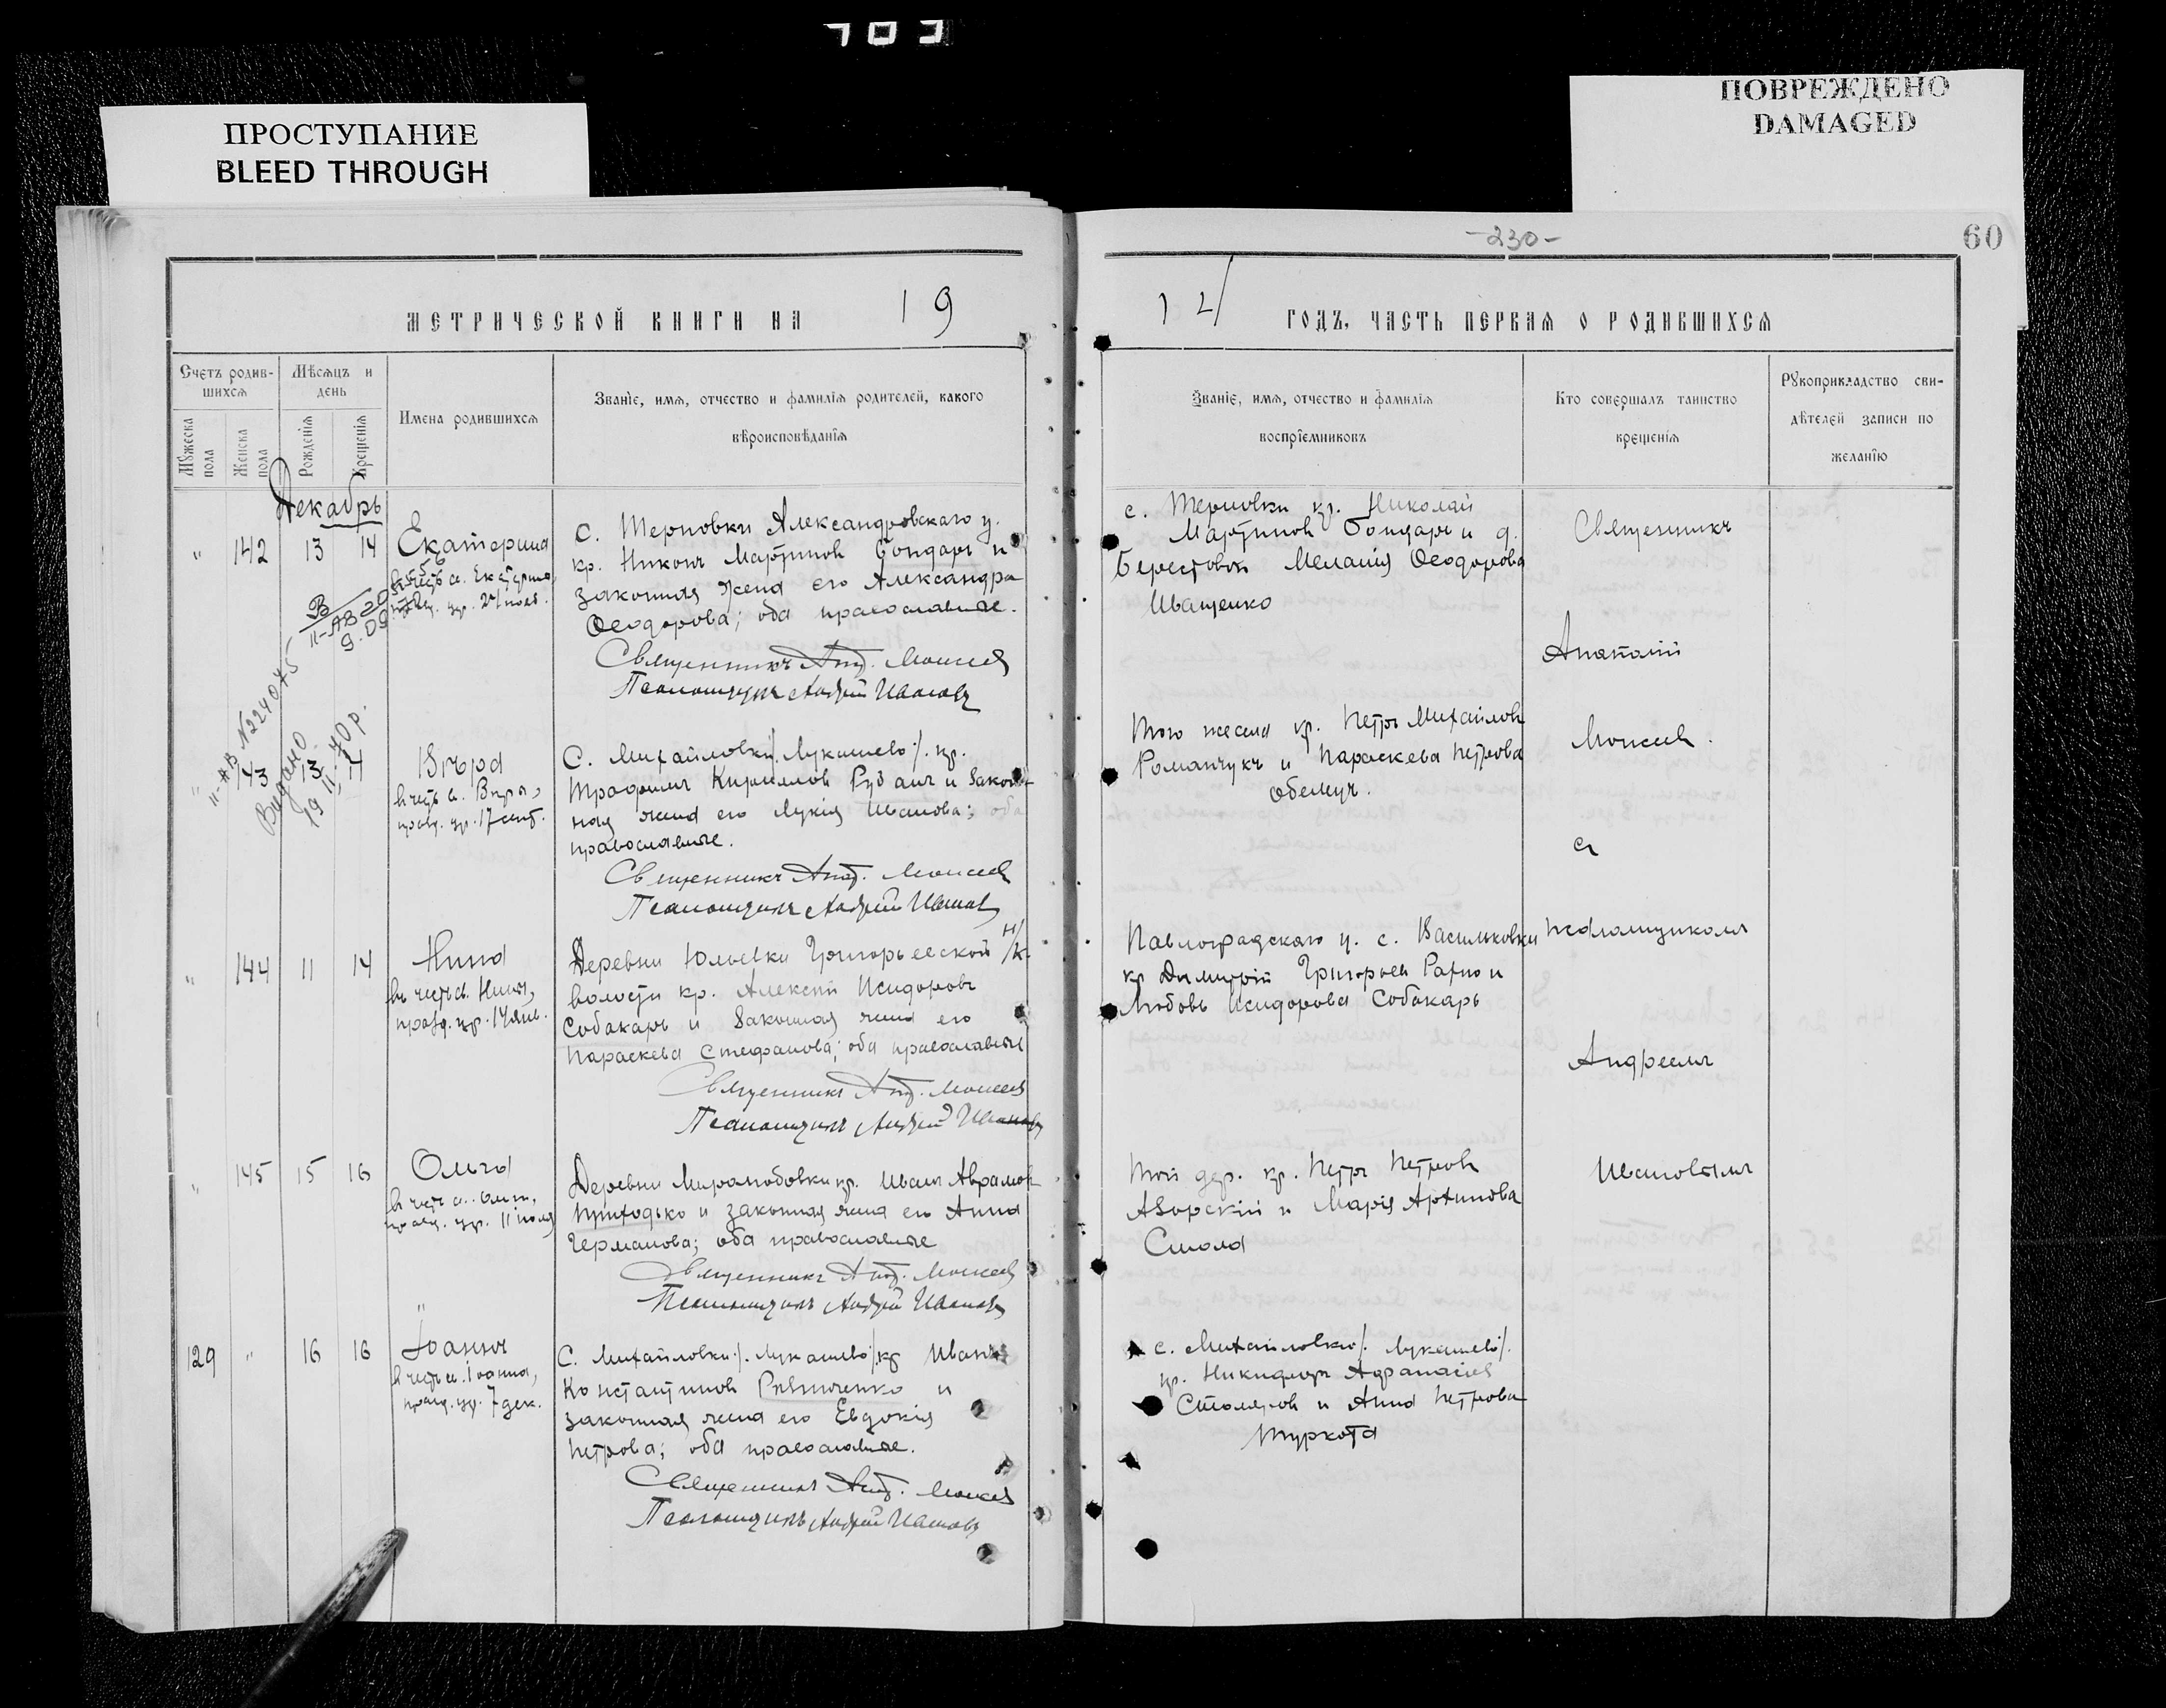 ПРОСТУПАНИЕ
BLEED THROUGH
ПОВРЕЖДЕНО
DAMAGED
-230-
60
МЕТРИЧЕСКОЙ КНИГИ НА 19
14 ГОДЪ, ЧАСТЬ ПЕРВАЯ О РОДИВШИХСЯ
Счетъ родив-
шихся
Мѣсяцъ и
день
Мужеска
пола
Женска
пола
Рожденія
Крещенія
Имена родившихся
Званіе, имя, отчество и фамилія родителей, какого
вѣроисповѣданія
Званіе, имя, отчество и фамилія
воспріемниковъ
Кто совершалъ таинство
крещенія
Рукоприкладство сви-
дѣтелей записи по
желанію
Декабрь
" 142 13 14 Екатерина
С. Терновки Александровскаго у.
кр. Никонъ Мартиновъ Бондарь и
законная жена его Александра
Ѳеодорова; оба православные.
Священникъ Анат. Моисеев
Псаломщикъ Андрей Ивановъ
с. Терновки кр. Николай
Мартиновъ Бондарь и д.
Берестовки Меланія Ѳеодорова
Иващенко
II-АВ №224075
Видано
19 II. 70 р.
" 143 13 14 Вѣра
въ честь м. Вѣры,
празд. цр. 17 сент.
С. Михайловки /.Лукашево/. кр.
Трофимъ Кирилловъ Рубанъ и закон-
ная жена его Лукія Иванова; оба
православные.
Священникъ Анат. Моисеев
Псаломщикъ Андрей Ивановъ
Того же села кр. Петръ Михайловъ
Романчукъ и Параскева Петрова
" 144 11 14 Нина
въ честь м. Нины,
празд. цр. 14 янв.
Деревни Юльевки Григорьевской
волости кр. Алексѣй Исидоровъ
Собакарь и законная жена его
Параскева Стефанова; оба православные
Священникъ Анат. Моисеев
Псаломщикъ Андрей Ивановъ
Павлоградскаго у. с. Васильковки
кр. Димитрій Григорьевъ Рахно и
Любовь Исидорова Собакарь
" 145 15 16 Ольга
празд. цр. 11 іюля
Деревни Миролюбовки кр. Иванъ Аврамовъ
Приходько и законная жена его Анна
Германова; оба православные
Священникъ Анат. Моисеев
Псаломщикъ Андрей Ивановъ
Той дер. кр. Петръ Петровъ
Яворскій и Марія
129 " 16 16 Іоаннъ
въ честь м. Іоанна,
празд. цр. 7 дек.
С. Михайловки /.Лукашево/. кр. Иванъ
Константиновъ и
законная жена его Евдокія
Петрова; оба православные.
Священникъ Анат. Моисеев
Псаломщикъ Андрей Ивановъ
с. Михайловки /.Лукашево/.
кр. Никифоръ Афанасіев
Столяровъ и Анна Петрова
Туркота
Священникъ
Анатолій
Моисеевъ.
съ
псаломщикомъ
Андреемъ
Ивановымъ